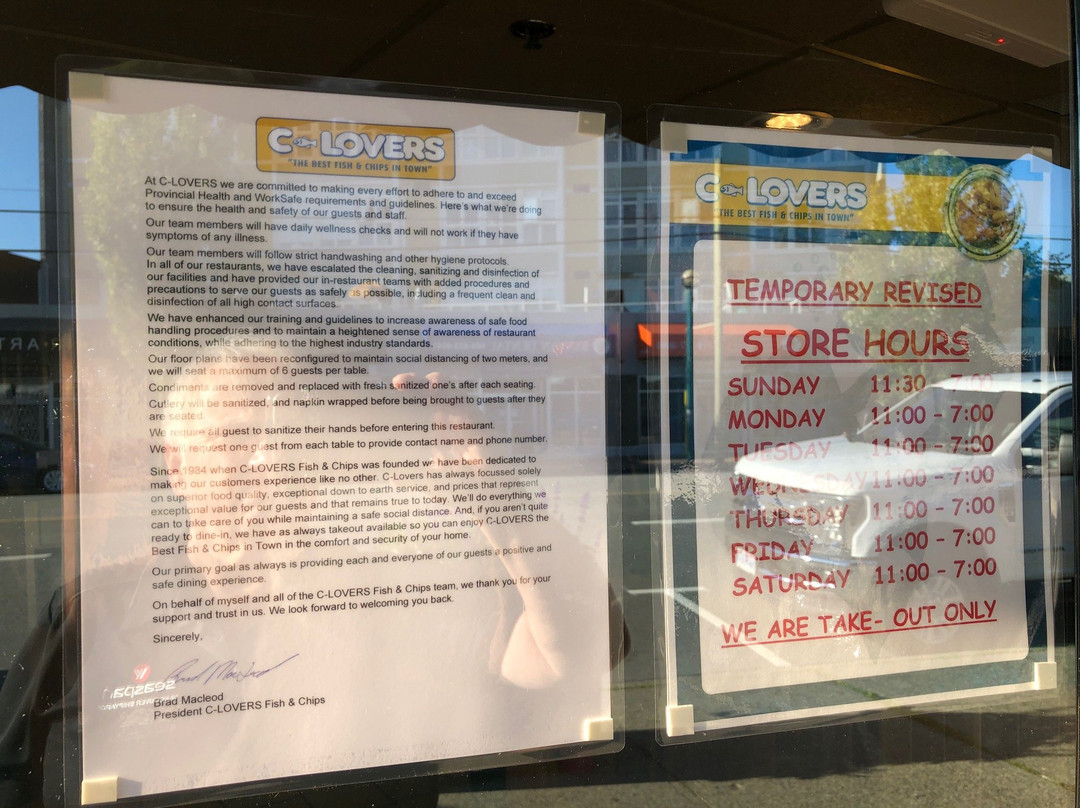 C LOVERS
"THE BEST FISH & CHIPS IN TOWN"
At C-LOVERS we are committed to making every effort to adhere to and exceed
Provincial Health and WorkSafe requirements and guidelines. Here's what we're doing
to ensure the health and safety of our guests and staff.
Our team members will have daily wellness checks and will not work if they have
symptoms of any illness.
Our team members will follow strict handwashing and other hygiene protocols.
In all of our restaurants, we have escalated the cleaning, sanitizing and disinfection of
our facilities and have provided our in-restaurant teams with added procedures and
precautions to serve our guests as safely as possible, including a frequent clean and
disinfection of all high contact surfaces.
We have enhanced our training and guidelines to increase awareness of safe food
handling procedures and to maintain a heightened sense of awareness of restaurant
conditions, while adhering to the highest industry standards.
Our floor plans have been reconfigured to maintain social distancing of two meters, and
we will seat a maximum of 6 guests per table.
Condiments are removed and replaced with fresh sanitized one's after each seating.
Cutlery will be sanitized, and napkin wrapped before being brought to guests after they
are seated.
We require all guest to sanitize their hands before entering this restaurant.
We will request one guest from each table to provide contact name and phone number.
Since 1984 when C-LOVERS Fish & Chips was founded we have been dedicated to
making our customers experience like no other. C-Lovers has always focussed solely
on superior food quality, exceptional down to earth service, and prices that represent
exceptional value for our guests and that remains true to today. We'll do everything we
can to take care of you while maintaining a safe social distance. And, if you aren't quite
ready to dine-in, we have as always takeout available so you can enjoy C-LOVERS the
Best Fish & Chips in Town in the comfort and security of your home.
Our primary goal as always is providing each and everyone of our guests a positive and
safe dining experience.
On behalf of myself and all of the C-LOVERS Fish & Chips team, we thank you for your
support and trust in us. We look forward to welcoming you back.
Sincerely,
Brad Macleod
Brad Macleod
President C-LOVERS Fish & Chips
C LOVERS
"THE BEST FISH & CHIPS IN TOWN"
TEMPORARY REVISED
STORE HOURS
SUNDAY 11:30 - 7:00
MONDAY 11:00 - 7:00
TUESDAY 11:00 - 7:00
WEDNESDAY 11:00 - 7:00
THURSDAY 11:00 - 7:00
FRIDAY 11:00 - 7:00
SATURDAY 11:00 - 7:00
WE ARE TAKE- OUT ONLY